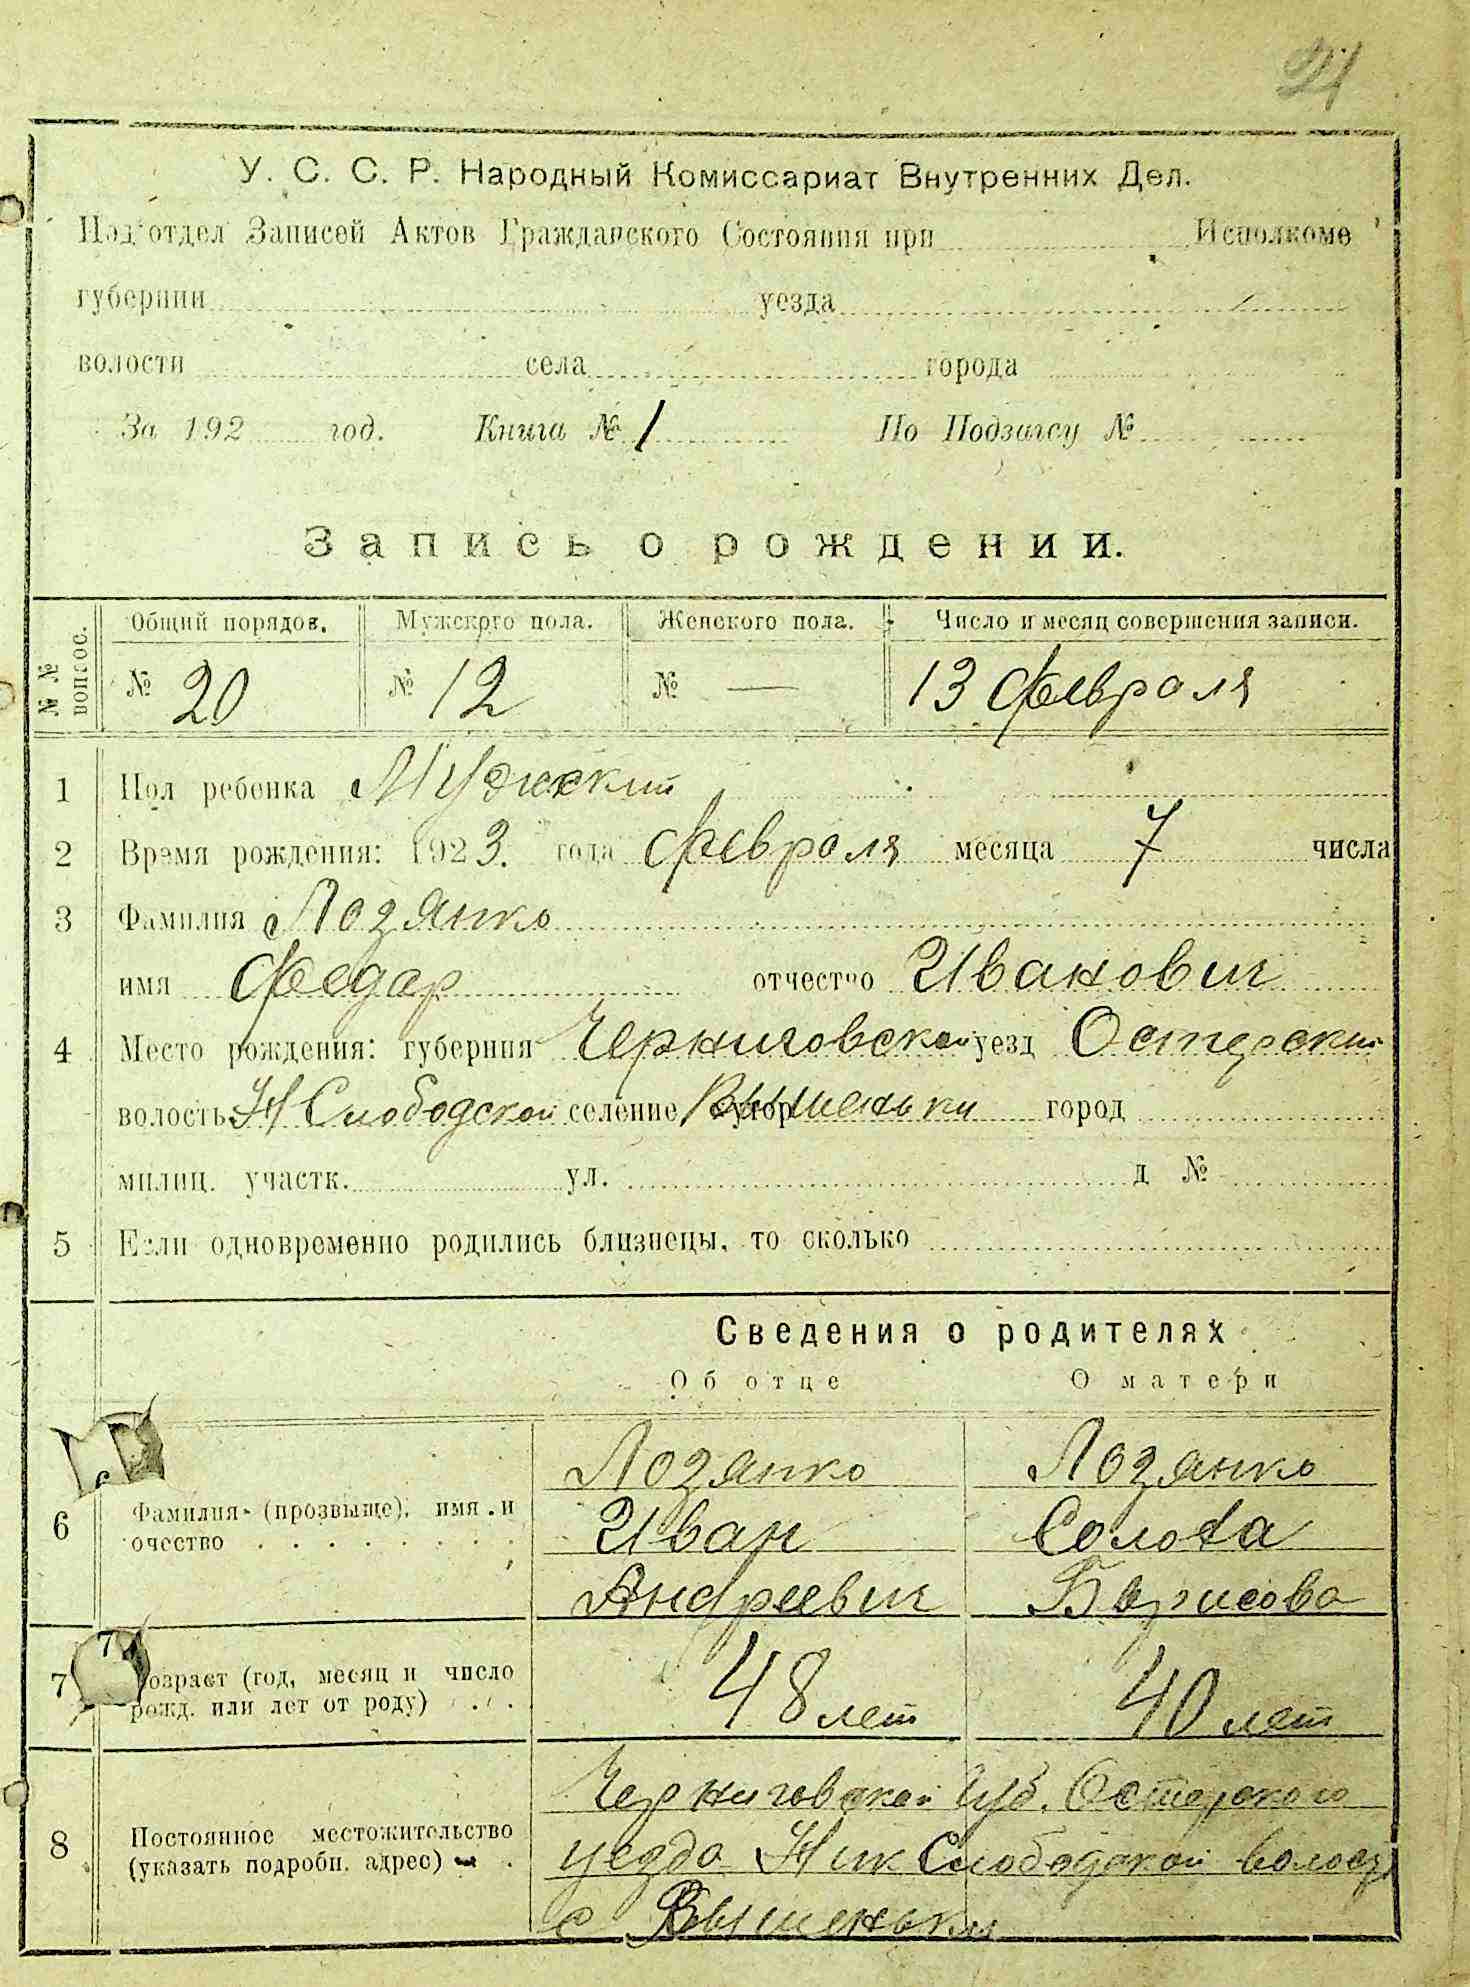 21
У. С. С. Р. Народный Комиссариат Внутренних Дел.
Подотдел Записей Актов Гражданского Состояния при Исполкоме
губернии уезда
волости села города
За 192 год. Книга № 1 По Подзагсу №
Запись о рождении.
№ № вопрос. Общий порядов. Мужского пола. Женского пола. Число и месяц совершения записи.
№ 20 № 12 № — 13 февраля
1 Пол ребенка Мужеский
2 Время рождения: 1923. года февраля месяца 7 числа
3 Фамилия Лозянко
имя Федар отчество Иванович
4 Место рождения: губерния Черниговской уезд Остерский
волость Н Слободской селение хутор Вышеньки город
милиц. участк. ул. д №
5 Если одновременно родились близнецы, то сколько
Сведения о родителях
Об отце О матери
Лозянко Лозянко
6 Фамилия (прозвыще), имя и Иван Солоха
очество Андреевич Борисова
7 7 возраст (год, месяц и число 48 лет 40 лет
рожд. или лет от роду)
Черниговской Губ. Остерского
8 Постоянное местожительство уездо Ник Слободской волости
(указать подробн. адрес) с Вышеньки